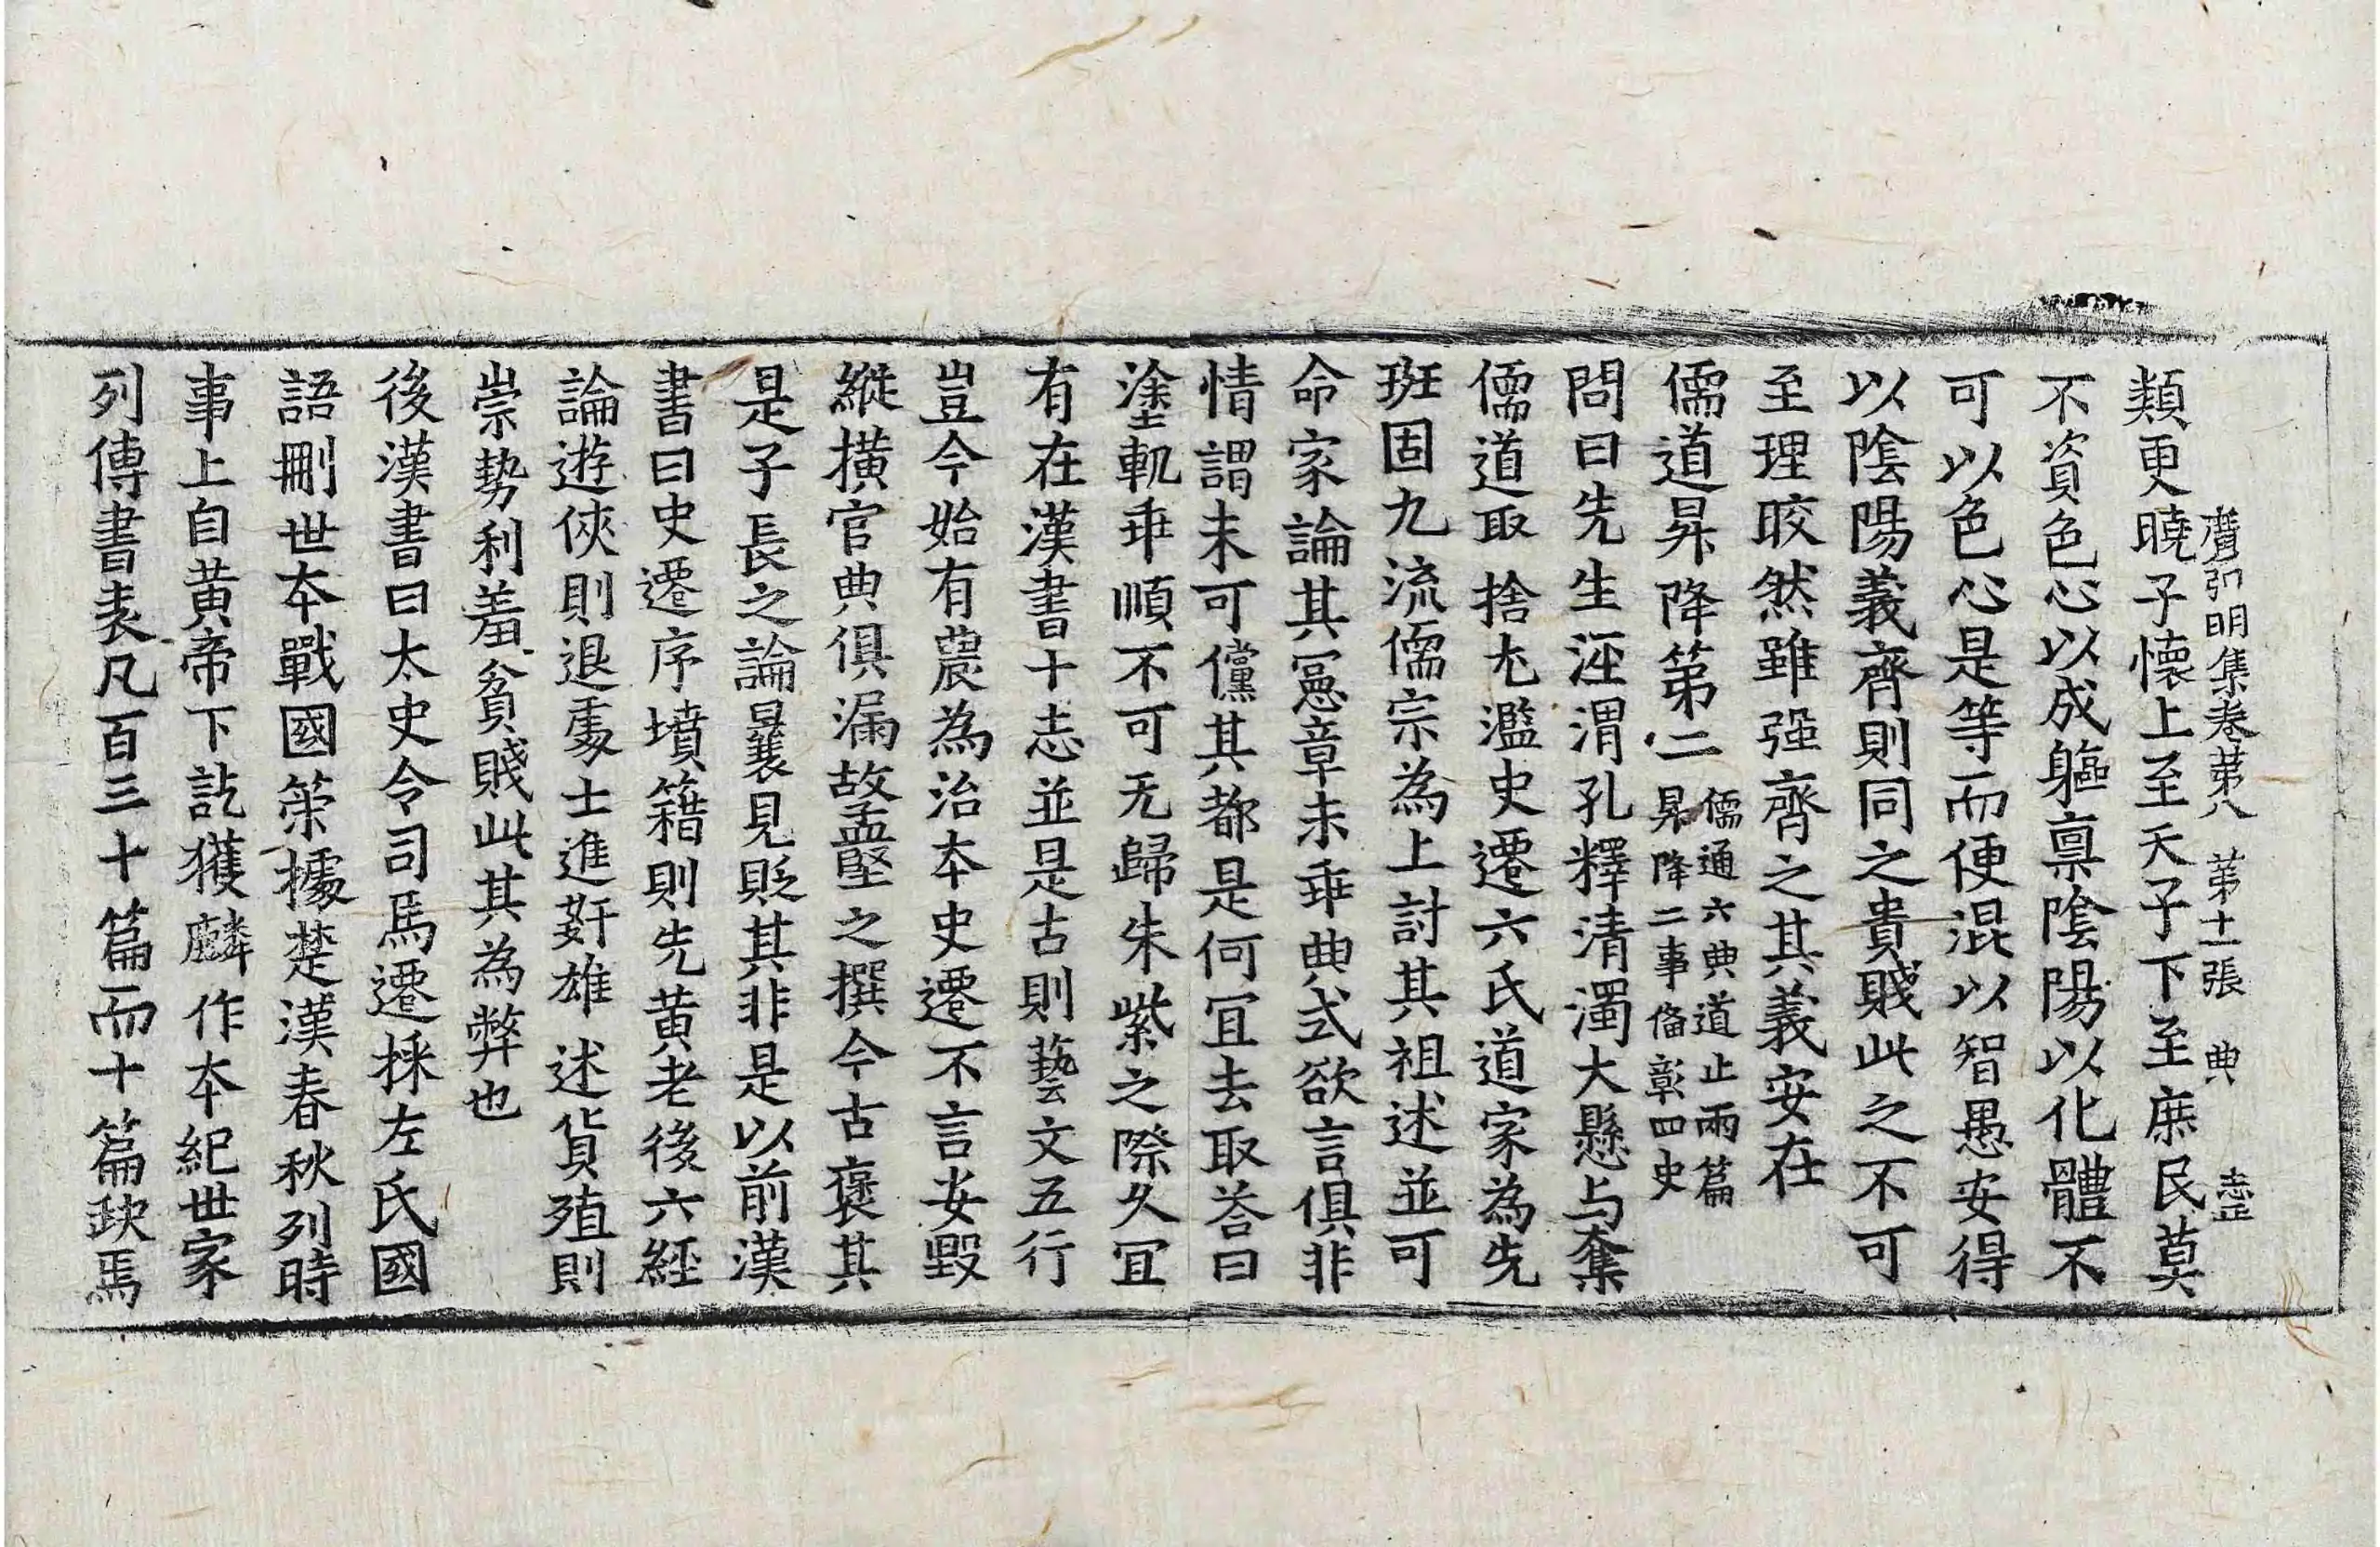 廣弘明集卷第八　第十一張　典　壹
類更曉子懷上至天子下至庶民莫
不資色心以成軀禀陰陽以化體不
可以色心是等而便混以智愚安得
以陰陽義齊則同之貴賤此之不可
至理皎然雖强齊之其義安在
儒道昇降第二
儒通六典道止兩篇
昇降二事俻彰四史
問曰先生涇渭孔釋清濁大懸与奪
儒道取捨尤濫史遷六氏道家為先
班固九流儒宗為上討其祖述並可
命家論其憲章未乖典式欲言俱非
情謂未可儻其都是何冝去取荅曰
塗軌乖順不可无歸朱紫之際久冝
有在漢書十志並是古則藝文五行
豈今始有農為治本史遷不言安毀
縱橫官典俱漏故孟堅之撰今古褒其
是子長之論曩見貶其非是以前漢
書曰史遷序墳籍則先黄老後六経
論遊俠則退處士進姧雄述貨殖則
崇勢利羞貧賤此其為弊也
後漢書曰太史令司馬遷採左氏國
語刪世本戰國策據楚漢春秋列時
事上自黄帝下訖獲麟作本紀世家
列傳書表凡百三十篇而十篇缺焉